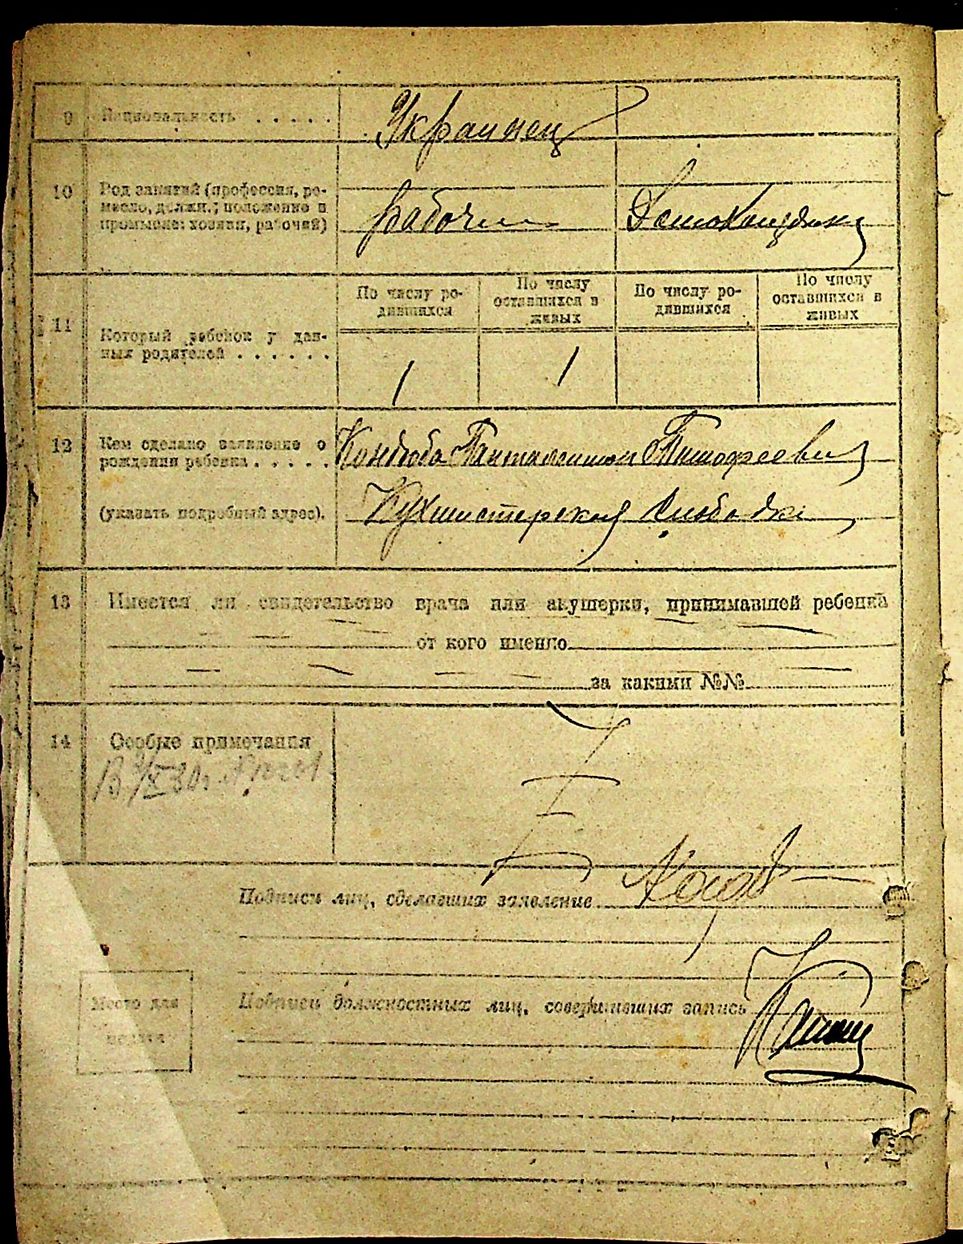 9 Национальность . . . . .
Украинец
10 Род занятий (профессия, ре-
месло, должн.; положение в
промысле: хозяин, рабочий)
рабочий Домохозяйка
11 Который ребенок у дан-
ных родителей . . . . . .
По числу ро-
дившихся
По числу
оставшихся в
живых
По числу ро-
дившихся
По числу
оставшихся в
живых
1 1
12 Кем сделано заявление о
рождении ребенка . . . . .
Тимофеевич
(указать подробный адрес).
Кухмистерская слободка
13 Имеется ли свидетельство врача или акушерки, принимавшей ребенка
от кого именно
за какими №№
14 Особые примечания
Подписи лиц, сделавших заявление
Подписи должностных лиц, совершивших запись
Место для
печати